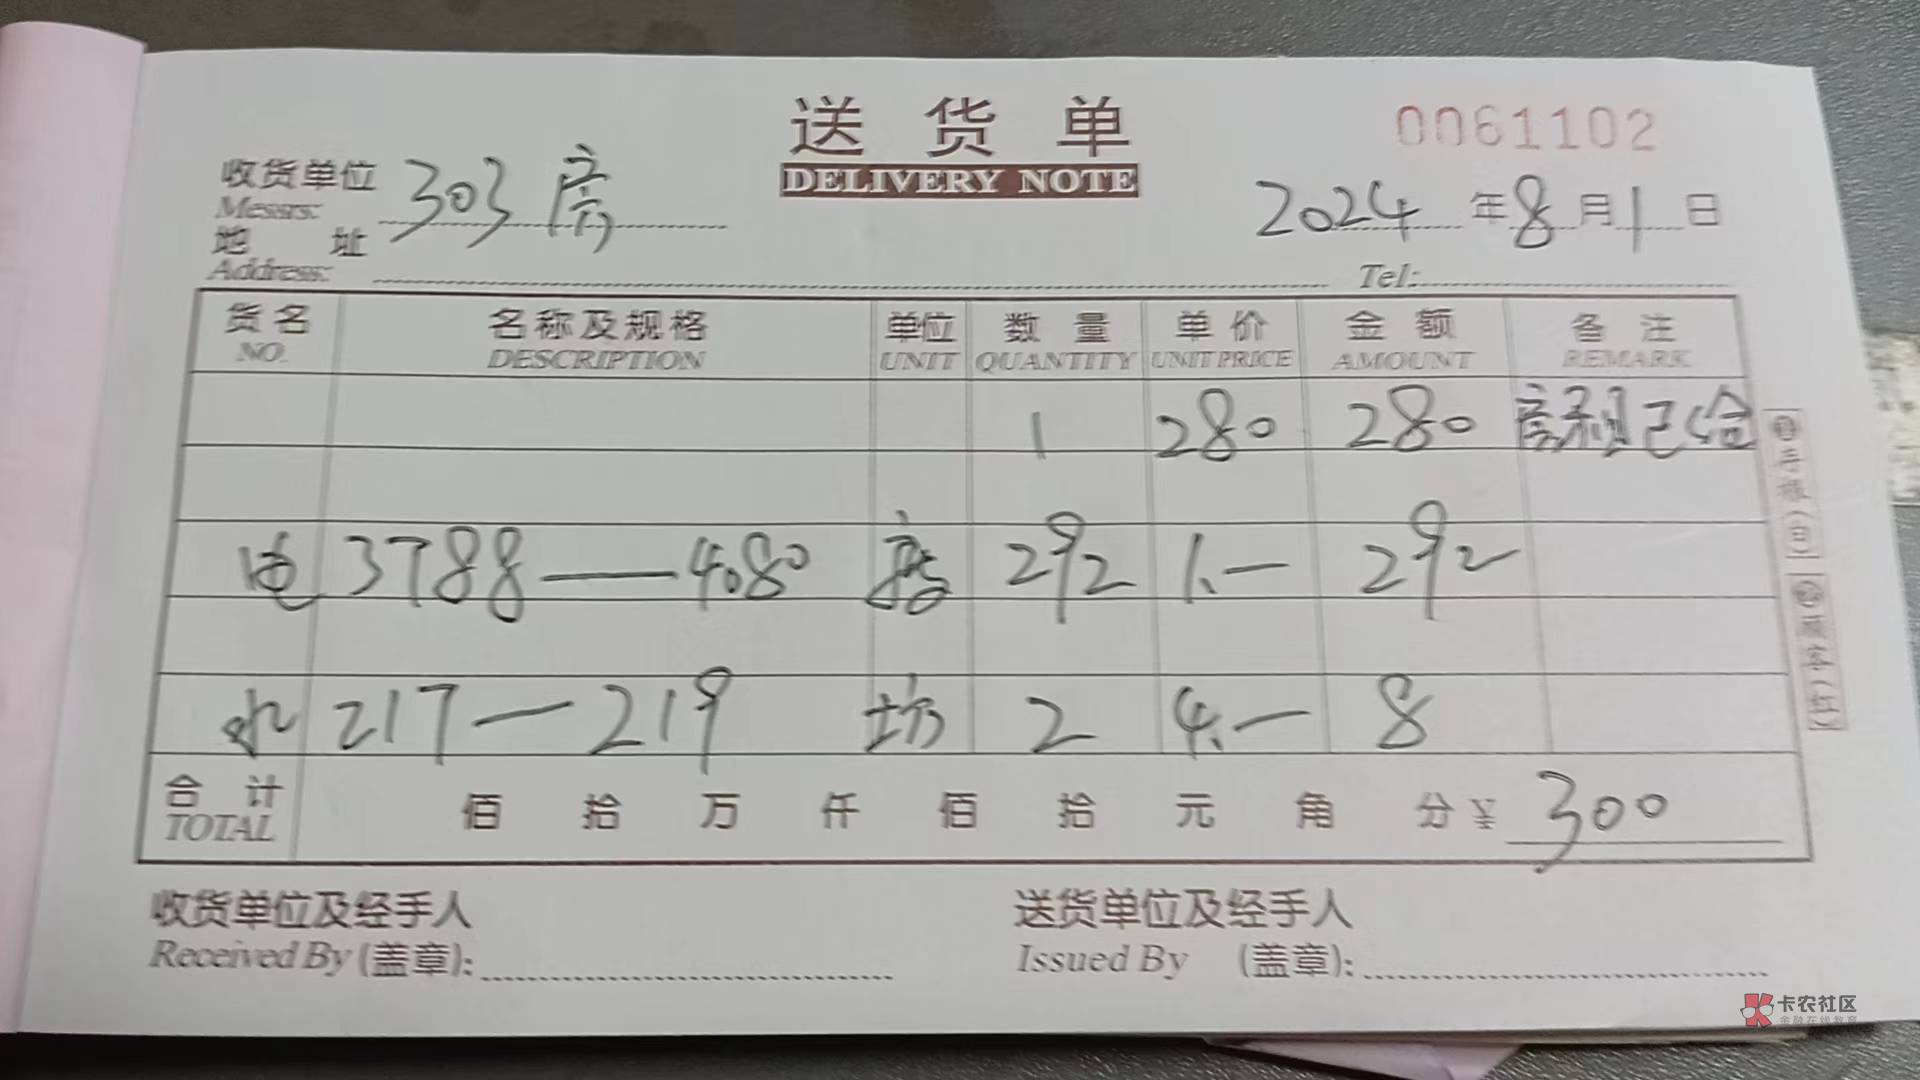 送货单
0061102
DELIVERY NOTE
收货单位 303房
Messrs:
2024年8月1日
地址
Address: Tel:
货名 名称及规格 单位 数量 单价 金额 备注
NO. DESCRIPTION UNIT QUANTITY UNIT PRICE AMOUNT REMARK
1 280 280 房租已给
电 3788——4080 度 292 1.— 292
水 217—219 坊 2 4.— 8
合计 佰 拾 万 仟 佰 拾 元 角 分 ¥ 300
TOTAL
①存根(白) ②顾客(红)
收货单位及经手人 送货单位及经手人
Received By (盖章): Issued By (盖章):
卡农社区
金融在线教育